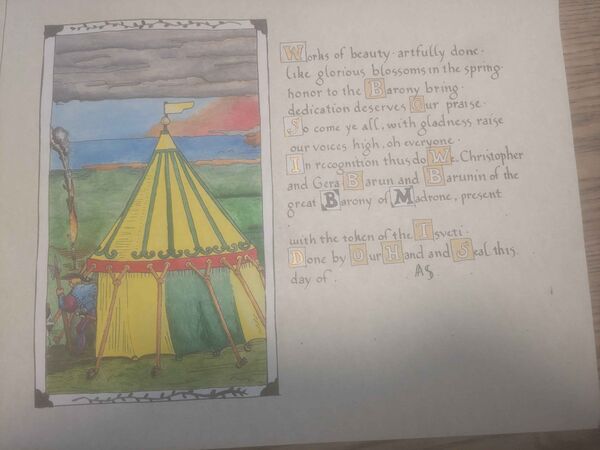 Works of beauty · artfully done ·
like glorious blossoms in the spring ·
honor to the Barony bring ·
dedication deserves Our praise ·
So come ye all, with gladness raise
our voices high, oh everyone ·
In recognition thus do We, Christopher
and Gera Barun and Barunin of the
great Barony of Madrone, present
with the token of the Isveti ·
Done by Our Hand and Seal this
day of .
AS